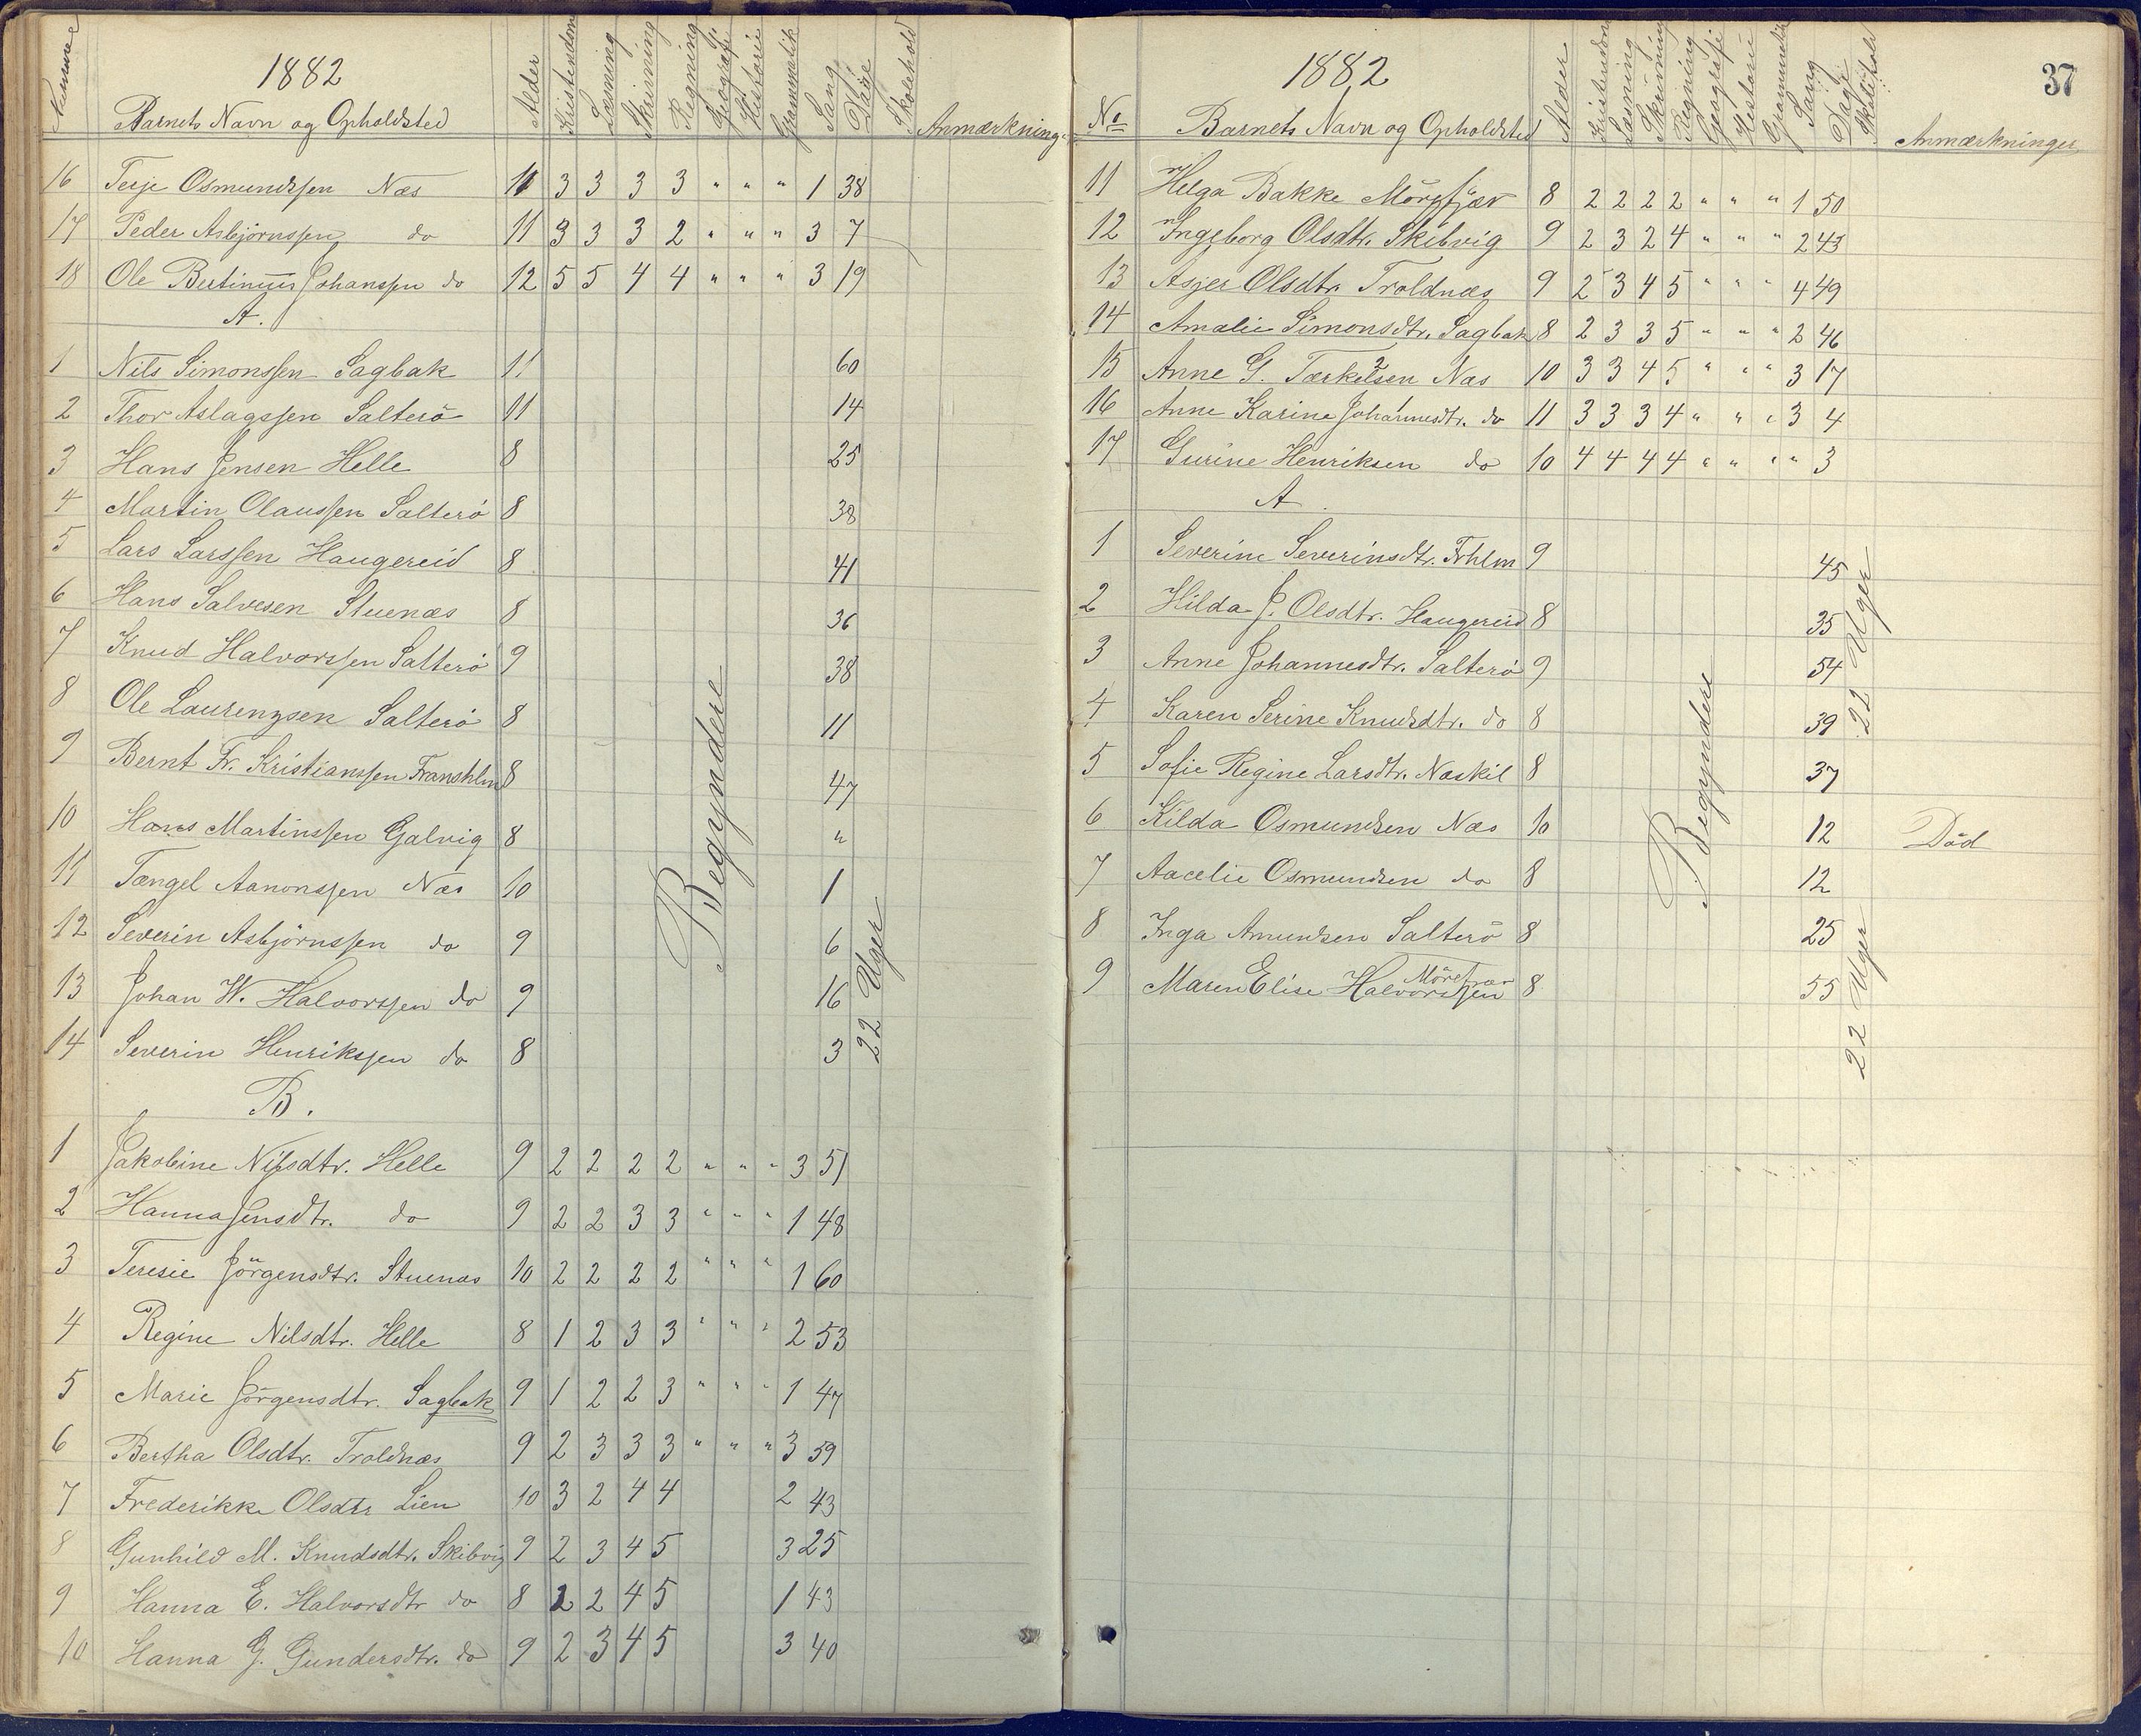 1882
Nummer Barnets Navn og Opholdsted Alder Kristendom Læsning Skrivning Regning Geografi Historie Grammatik Sang Dage Skolehold Anmærkning.
16 Terje Osmundssen Næs 11 3 3 3 3 " " " 1 38
17 Peder Asbjörnssen do 11 3 3 3 2 " " " 3 7
18 Ole Bertinius Johanssen do 12 5 5 4 4 " " " 3 19
A.
1 Nils Simonssen Sagbak 11 60
2 Thor Aslagssen Salterö 11 14
3 Hans Jensen Helle 8 25
4 Martin Olaussen Salterö 8 38
5 Lars Larssen Haugereid 8 41
6 Hans Salvesen Stuenæs 8 36
7 Knud Halvorssen Salterö 9 38
8 Ole Laurenzsen Salterö 8 11
9 Bernt Fr. Kristianssen Franshlm 8 47
10 Hans Martinssen Galvig 8 "
11 Tængel Aanonssen Næs 10 1
12 Severin Asbjörnssen do 9 6
13 Johan W. Halvorssen do 9 16
14 Severin Henrikssen do 8 3
Begyndere
22 Uger
B.
1 Jakobine Nilsdtr. Helle 9 2 2 2 2 " " " 3 51
2 Hanna Jensdtr. do 9 2 2 3 3 " " " 1 48
3 Teresie Jörgensdtr. Stuenæs 10 2 2 2 2 " " " 1 60
4 Regine Nilsdtr. Helle 8 1 2 3 3 " " " 2 53
5 Marie Jörgensdtr. Sagbak 9 1 2 2 3 " " " 1 47
6 Bertha Olsdtr. Troldnæs 9 2 3 3 3 " " " 3 59
7 Frederikke Olsdtr Lien 10 3 2 4 4 2 43
8 Gunhild M. Knudsdtr. Skibvig 9 2 3 4 5 3 25
9 Hanna E. Halvorsdtr do 8 2 2 4 5 1 43
10 Hanna G. Gundersdtr. do 9 2 3 4 5 3 40
37
1882
No Barnets Navn og Opholdsted Alder Kristendom Læsning Skrivning Regning Geografi Historie Grammatik Sang Dage Skolehold Anmærkninger
11 Helga Bakke Mörefjær 8 2 2 2 2 " " " 1 50
12 Ingeborg Olsdtr. Skibvig 9 2 3 2 4 " " " 2 43
13 Asjer Olsdtr. Troldnæs 9 2 3 4 5 " " " 4 49
14 Amalie Simonsdtr. Sagbak 8 2 3 3 5 " " " 2 46
15 Anne G. Tærkelsen Næs 10 3 3 4 5 " " " 3 17
16 Anne Karine Johannesdtr. do 11 3 3 3 4 " " " 3 4
17 Gurine Henriksen do 10 4 4 4 4 " " " " 3
A
1 Severine Severinsdtr. Frhlm 9 45
2 Hilda J. Olsdtr. Haugereid 8 35
3 Anne Johannesdtr. Salterö 9 54
4 Karen Serine Knudsdtr. do 8 39
5 Sofie Regine Larsdtr. Næskil 8 37
6 Kilda Osmundsen Næs 10 12 Död
7 Aacelie Osmundsen do 8 12
8 Inga Amundsen Salterö 8 25
9 Maren Elise Halvorssen Mörefjær 8 55
Begyndere
22 Uger
22 Uger